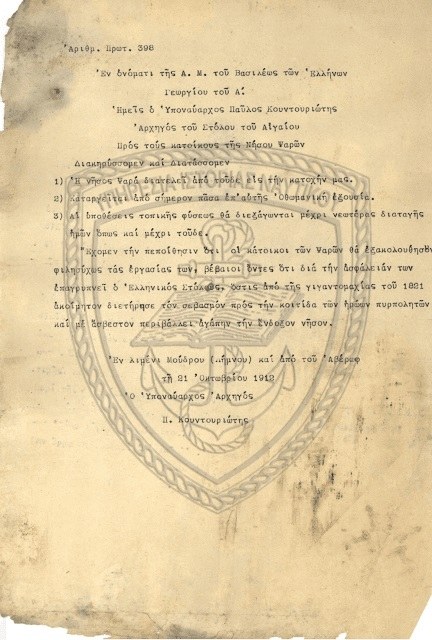 Ἀριθμ. Πρωτ. 398
Ἐν ὀνόματι τῆς Α. Μ. τοῦ Βασιλέως τῶν Ἑλλήνων
Γεωργίου τοῦ Α΄
Ἡμεῖς ὁ Ὑποναύαρχος Παῦλος Κουντουριώτης
Ἀρχηγός τοῦ Στόλου τοῦ Αἰγαίου
Πρός τούς κατοίκους τῆς Νήσου Ψαρῶν
Διακηρύσσομεν καί Διατάσσομεν
1) Ἡ νῆσος Ψαρά διατελεῖ ἀπό τοῦδε εἰς τήν κατοχήν μας.
2) Καταργεῖται ἀπό σήμερον πᾶσα ἐπ'αὐτῆς Ὀθωμανική ἐξουσία.
3) Αἱ ὑποθέσεις τοπικῆς φύσεως θά διεξάγωνται μέχρι νεωτέρας διαταγῆς
ἡμῶν ὅπως καί μέχρι τοῦδε.
Ἔχομεν τήν πεποίθησιν ὅτι οἱ κάτοικοι τῶν Ψαρῶν θά ἐξακολουθήσουν
φιλησύχως τάς ἐργασίας των, βέβαιοι ὄντες ὅτι διά τήν ἀσφάλειάν των
ἐπαγρυπνεῖ ὁ Ἑλληνικός Στόλος, ὅστις ἀπό τῆς γιγαντομαχίας τοῦ 1821
ἀκοίμητον διετήρησε τόν σεβασμόν πρός τήν κοιτίδα τῶν ἡρώων πυρπολητῶν
καί μέ ἄσβεστον περιβάλλει ἀγάπην τήν ἔνδοξον νῆσον.
Ἐν λιμένι Μούδρου (Λήμνου) καί ἀπό τοῦ Ἀβέρωφ
τῇ 21 Ὀκτωβρίου 1912
Ὁ Ὑποναύαρχος Ἀρχηγός
Π. Κουντουριώτης